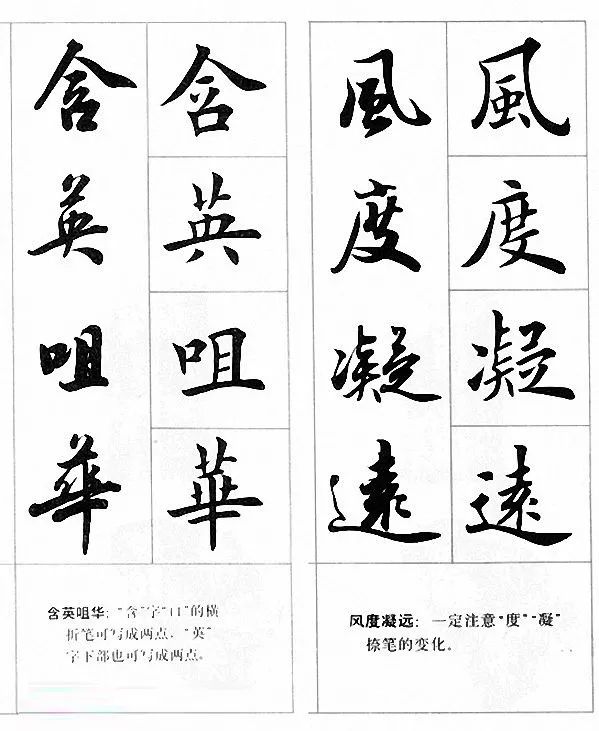 含英咀華
含英咀華
含英咀华：“含”字“口”的横
折笔可写成两点，“英”
字下部也可写成两点。
風度凝遠
風度凝遠
风度凝远：一定注意“度”“凝”
捺笔的变化。